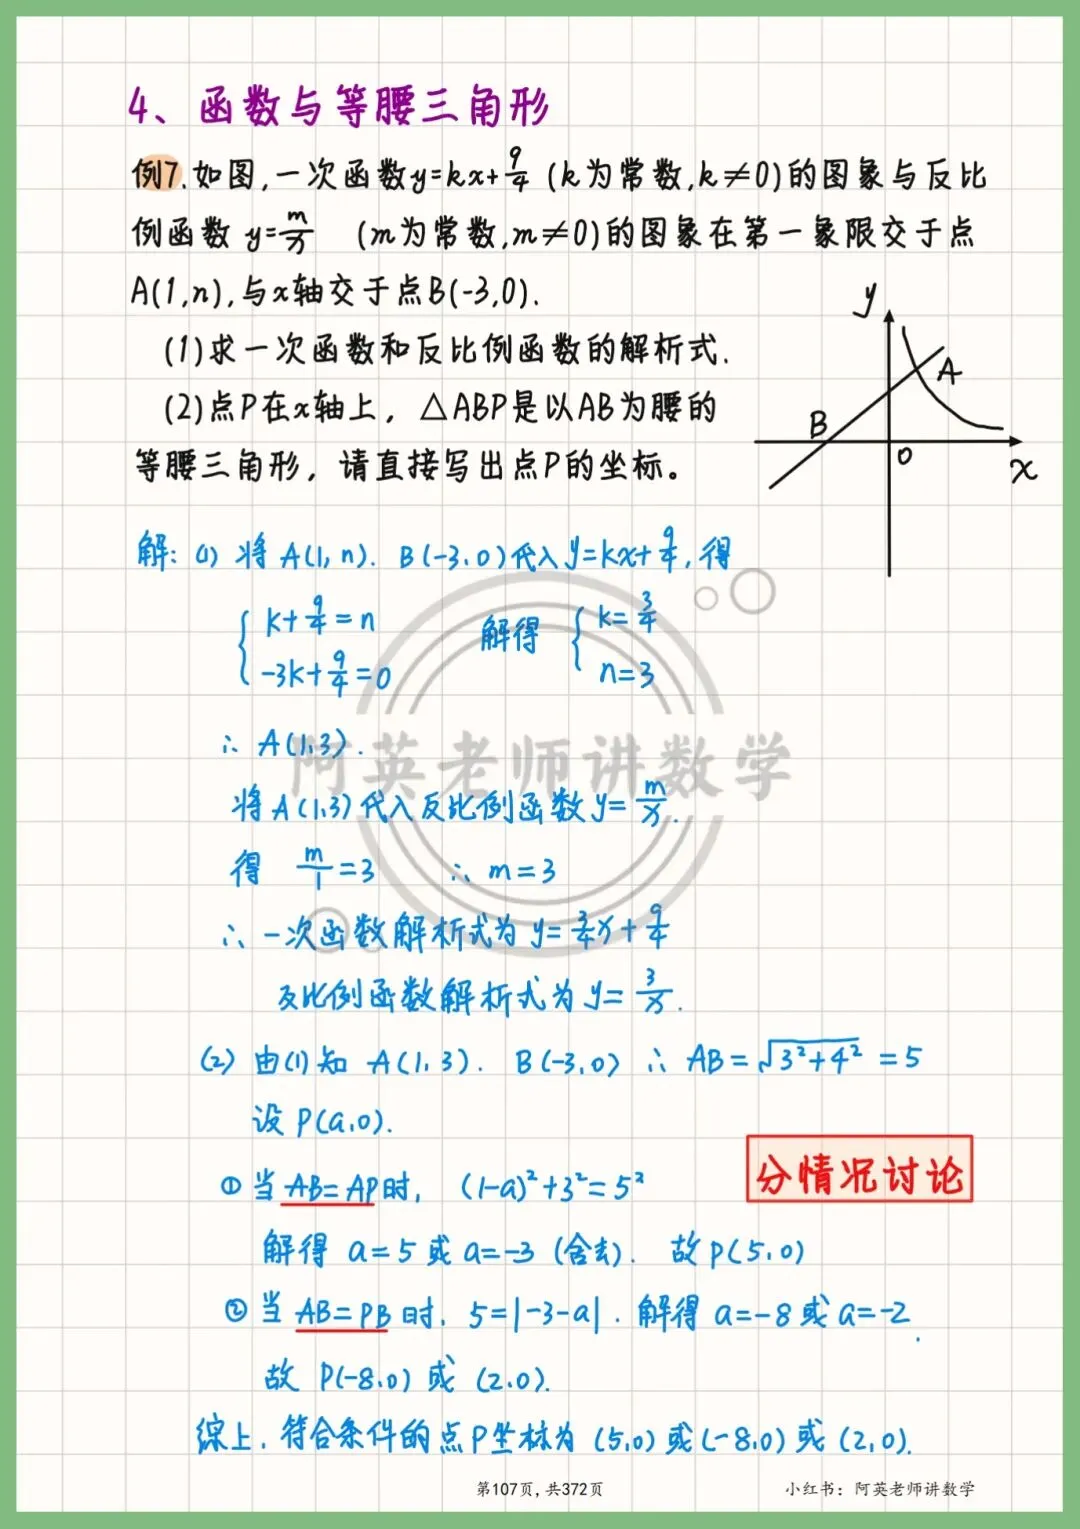 4、函数与等腰三角形
例7.如图,一次函数y=kx+9/4 (k为常数,k≠0)的图象与反比
例函数 y=m/x (m为常数,m≠0)的图象在第一象限交于点
A(1,n),与x轴交于点B(-3,0).
(1)求一次函数和反比例函数的解析式.
(2)点P在x轴上, △ABP是以AB为腰的
等腰三角形, 请直接写出点P的坐标。
y
A
B
O
x
解: (1) 将 A(1, n). B(-3.0)代入 y=kx+9/4, 得
{ k+9/4=n
-3k+9/4=0
解得 { k=3/4
n=3
∴ A(1.3).
将 A(1.3)代入反比例函数 y=m/x.
得 m/1=3 ∴ m=3
∴ 一次函数解析式为 y=3/4x+9/4
反比例函数解析式为 y=3/x.
(2) 由(1)知 A(1.3). B(-3.0) ∴ AB=√3²+4² =5
设 P(a.0).
① 当 AB=AP时, (1-a)²+3²=5²
解得 a=5 或 a=-3 (舍去). 故P(5.0)
② 当 AB=PB 时. 5=|-3-a|. 解得 a=-8 或 a=-2.
故 P(-8.0) 或 (2.0).
综上. 符合条件的点P坐标为 (5.0) 或(-8.0) 或 (2.0).
分情况讨论
阿英老师讲数学
第107页,共372页
小红书：阿英老师讲数学